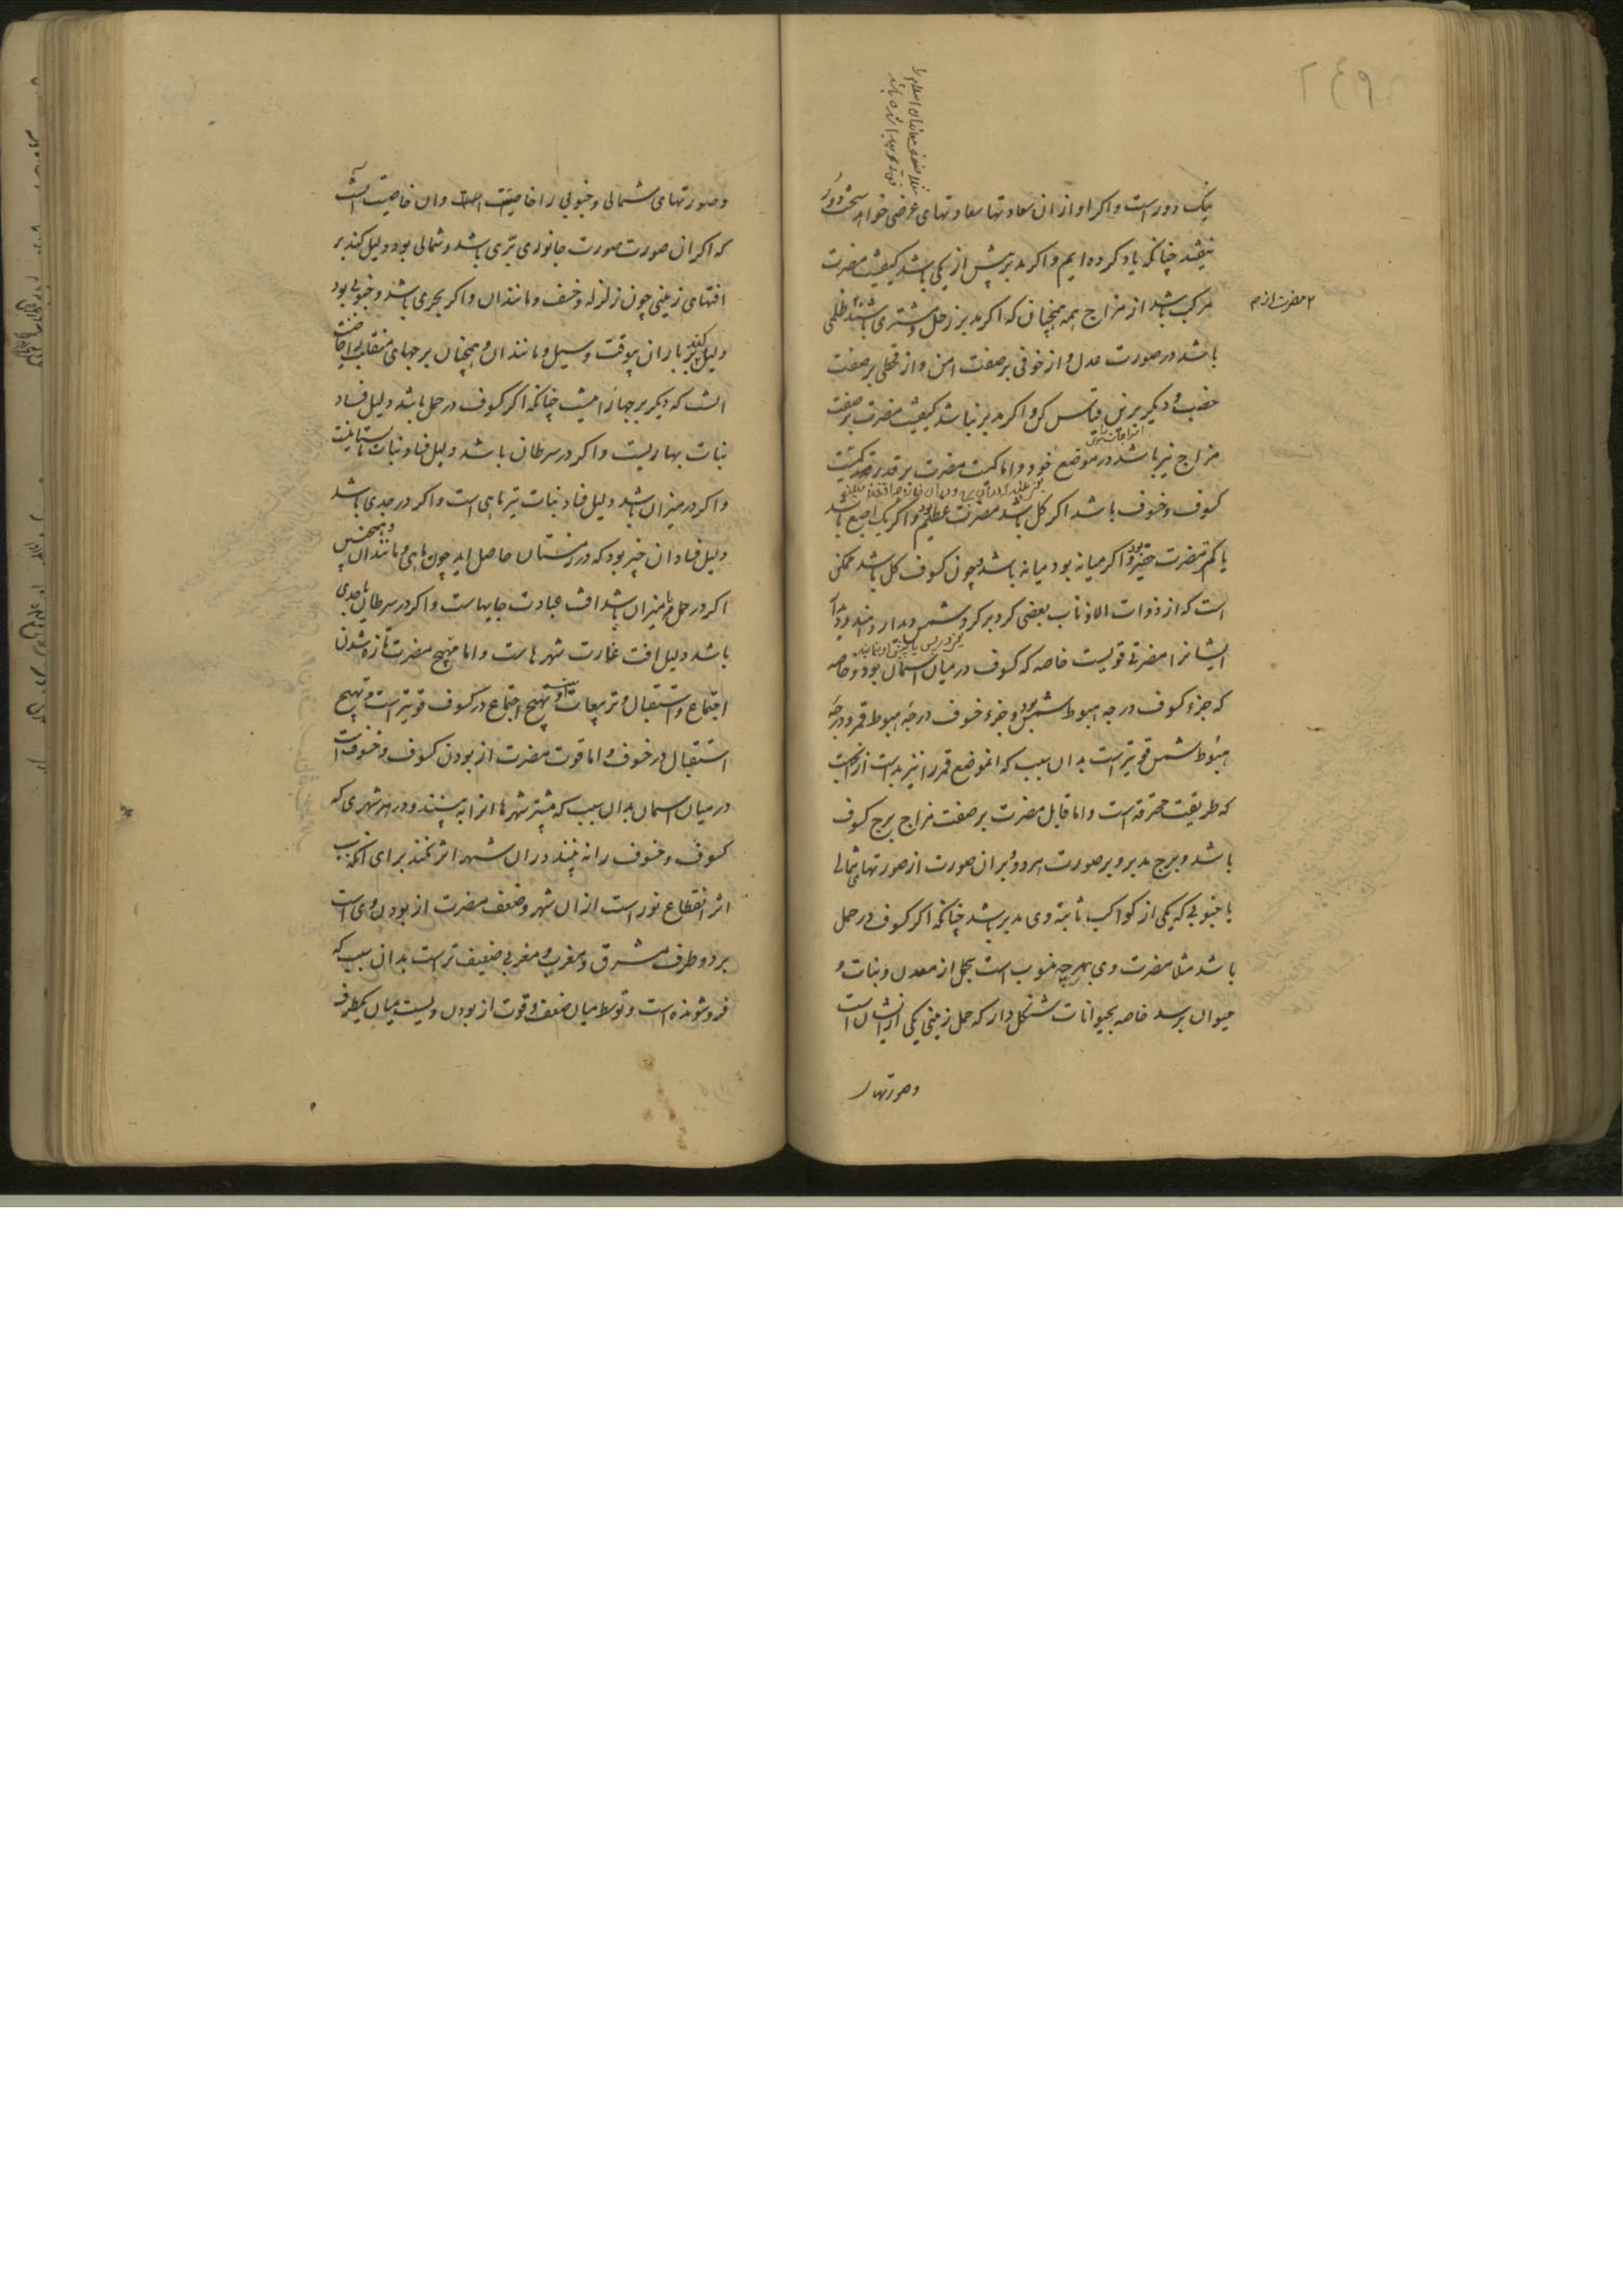 نیک دورست و اکر او از ان سعادتها سعادتهای عرضی خواهد سخت دور
نیفتد چنانکه یاد کرده ایم و اکر مدبر بیش از یکی باشد کیفیت مضرت
مرکب باشد از مزاج همه همچنان که اکر مدبر زحل و مشتری باشند ظلمی
۲ مضرت از م
باشد در صورت عدل و از خوفی بر صفت امن و از قحطی بر صفت
خصب و دیکر برین قیاس کن و اکر مدبر نباشد کیفیت مضرت بر صفت
مزاج نیر باشد در موضع خود و اما کمیت مضرت بر قدر کمیت
کسوف و خسوف باشد اکر کل باشد مضرت عظیم بود و اکر یک اصبع باشد
یا کم مضرت حقیر بود و اکر میانه بود میانه باشد و چون کسوف کل باشد ممکن
است که از ذوات الاذناب بعضی کرد بر کرد شمس دیدار دهند و
ایشانرا مضرتی قویست خاصه که کسوف در میان اسمان بود و خاصه
که جزء کسوف درجه هبوط شمس بود و جزء خسوف درجه هبوط قمر و درجه
هبوط شمس قویترست بدان سبب که انموضع قمر را نیز بدست از انجهت
که طریقت محترقه است و اما قابل مضرت بر صفت مزاج برج کسوف
باشد و برج مدبر و بر صورت هر دو و بر ان صورت از صورتهای شمالی
یا جنوبی که یکی از کواکب ثابته وی مدبر باشد چنانکه اکر کسوف در حمل
باشد مثلا مضرت وی بهرچه منسوب است بحمل از معدن و نبات و
حیوان برسد خاصه بحیوانات شکل دار که حمل زمینی یکی از ایشان است
و صورتهاء
و صورتهای شمالی و جنوبی را خاصیت است و ان خاصیت انست
که اکر ان صورت صورت جانوری بری باشد و شمالی بود دلیل کند بر
افتهای زمینی چون زلزله و خسف و مانند ان و اکر بحری باشد و جنوبی بود
دلیل کند بر باران بیوقت و سیل و مانند ان و همچنان برجهای منقلب را خاصیت
انست که دیکر برجها را نیست چنانکه اکر کسوف در حمل باشد دلیل فساد
نبات بهاریست و اکر در سرطان باشد دلیل فساد نبات تابستانیست
و اکر در میزان باشد دلیل فساد نبات تیرماهی است و اکر در جدی باشد
دلیل فساد ان چیز بود که در زمستان حاصل اید چون ماهی و مانند ان و همچنین
اکر در حمل یا میزان باشد افت عبادت جایهاست و اکر در سرطان یا جدی
باشد دلیل افت غارت شهرهاست و اما مهیج مضرت تازه شدن
اجتماع و استقبال و تربیعات است و تهیج اجتماع در کسوف قویترست و تهیج
استقبال در خسوف و اما قوت مضرت از بودن کسوف و خسوف است
در میان اسمان بدان سبب که بیشتر شهرها انرا به بینند و در هر شهری که
کسوف و خسوف را نه بینند در ان شهر اثر نکند برای انکه سبب
اثر انقطاع نور است از ان شهر و ضعف مضرت از بودن وی است
بر دو طرف مشرق و مغرب و مغربی ضعیف تر است بدان سبب که
فروشونده است و توسط میان ضعف و قوت از بودن ویست میان یکطرف